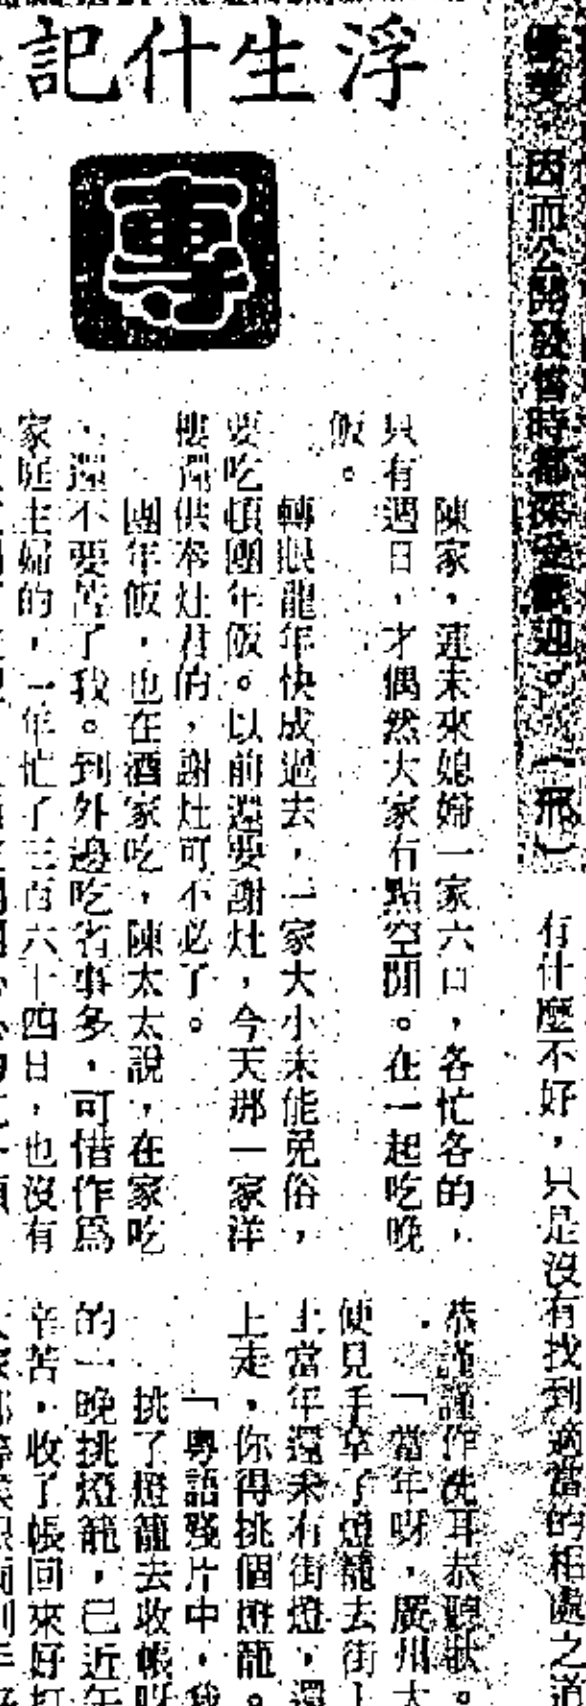 浮生什記
專
因而公開發售時都深受歡迎。(邢)
有什麼不好，只是沒有找到適當的相處之道
陳家，連未來媳婦一家六口，各忙各的，
只有週日，才偶然大家有點空閒。在一起吃晚
飯。
轉眼龍年快成過去，一家大小未能免俗，
要吃頓團年飯。以前還要謝灶，今天那一家洋
樓還供奉灶君的，謝灶可不必了。
團年飯，也在酒家吃，陳太太說，在家吃
，還不要苦了我。到外邊吃省事多，可惜作爲
家庭主婦的，一年忙了三百六十四日，也沒有
恭謹謹作洗耳恭聽狀。
「當年呀，廣州大
便見手拿了燈籠去街上
上當年還未有街燈，還
上走，你得挑個燈籠。
「粵語殘片中，我
挑了燈籠去收帳呀
的一晚挑燈籠，已近午
辛苦，收了帳回來好打